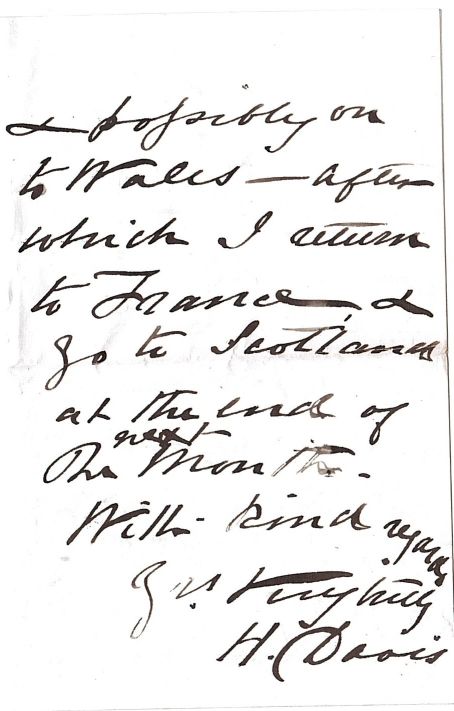 & possibly on
to Wales — after
which I return
to France, &
go to Scotland
at the end of
next
the Month.
With kind regards
Yrs Very truly
H. Davis